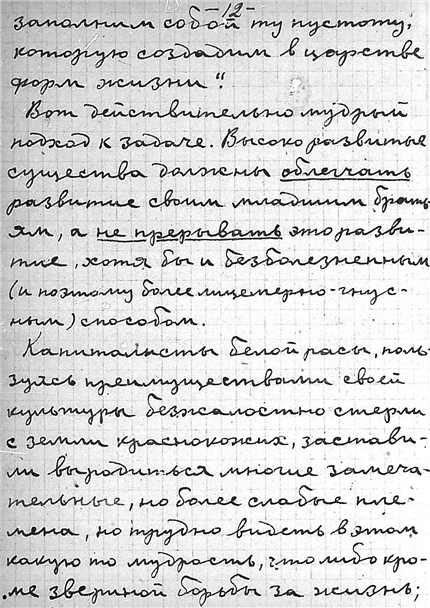 -12-
заполним собой ту пустоту,
которую создадим в царстве
форм жизни".
Вот действительно мудрый
подход к задаче. Высоко развитые
существа должны облегчать
развитие своим младшим брать-
ям, а не прерывать это разви-
тие, хотя бы и безболезненным
(и поэтому более лицемерно-гнус-
ным) способом.
Капиталисты белой расы, поль-
зуясь преимуществами своей
культуры безжалостно стерли
с земли краснокожих, застави-
ли выродиться многие замеча-
тельные, но более слабые пле-
мена, но трудно видеть в этом
какую то мудрость, что либо кро-
ме звериной борьбы за жизнь;